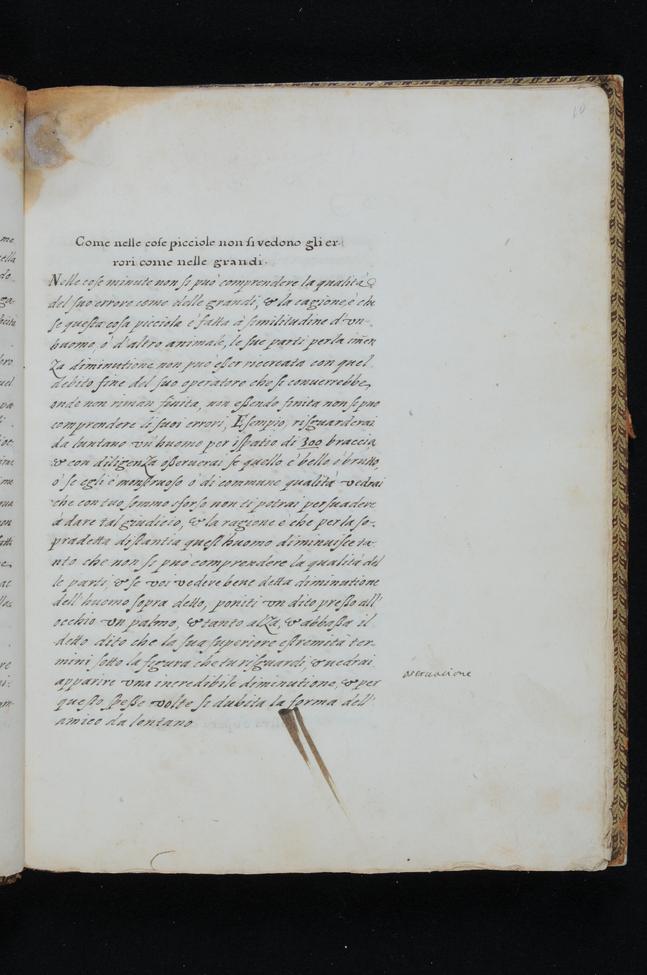 10
Come nelle cose picciole non si vedono gli er-
rori come nelle grandi.
Nelle cose minute non si può comprendere la qualità
del suo errore come delle grandi, & la cagione è che
se questa cosa picciola è fatta à similitudine d'un
huomo, ò d'altro animale, le sue parti per la imen
za diminutione non può esser ricercata con quel
debito fine del suo operatore che si converrebbe,
onde non riman finita, non essendo finita non si puo
comprendere li suoi errori, Esempio, risguarderai
da luntano un huomo per ispatio di 300 braccia
& con diligenza osservarai se quello è bello è brutto,
ò se egli è monstruoso ò di commune qualità vedrai
che con tuo sommo sforso non ti potrai persuadere
à dare tal giudicio, & la ragione è che per la so-
pradetta distantia quest'huomo diminuisce ta-
nto che non si può comprendere la qualità del
le parti, & se voi vedere bene detta diminutione
dell'huomo sopra detto, poniti un dito presso all'
occhio un palmo, & tanto alza, & abbassa il
detto dito che la sua superiore estremità ter-
mini sotto la figura che tu risguardi, & vedrai
apparire una incredibile diminutione, & per
questo spesse volte si dubita la forma dell'
amico da lontano